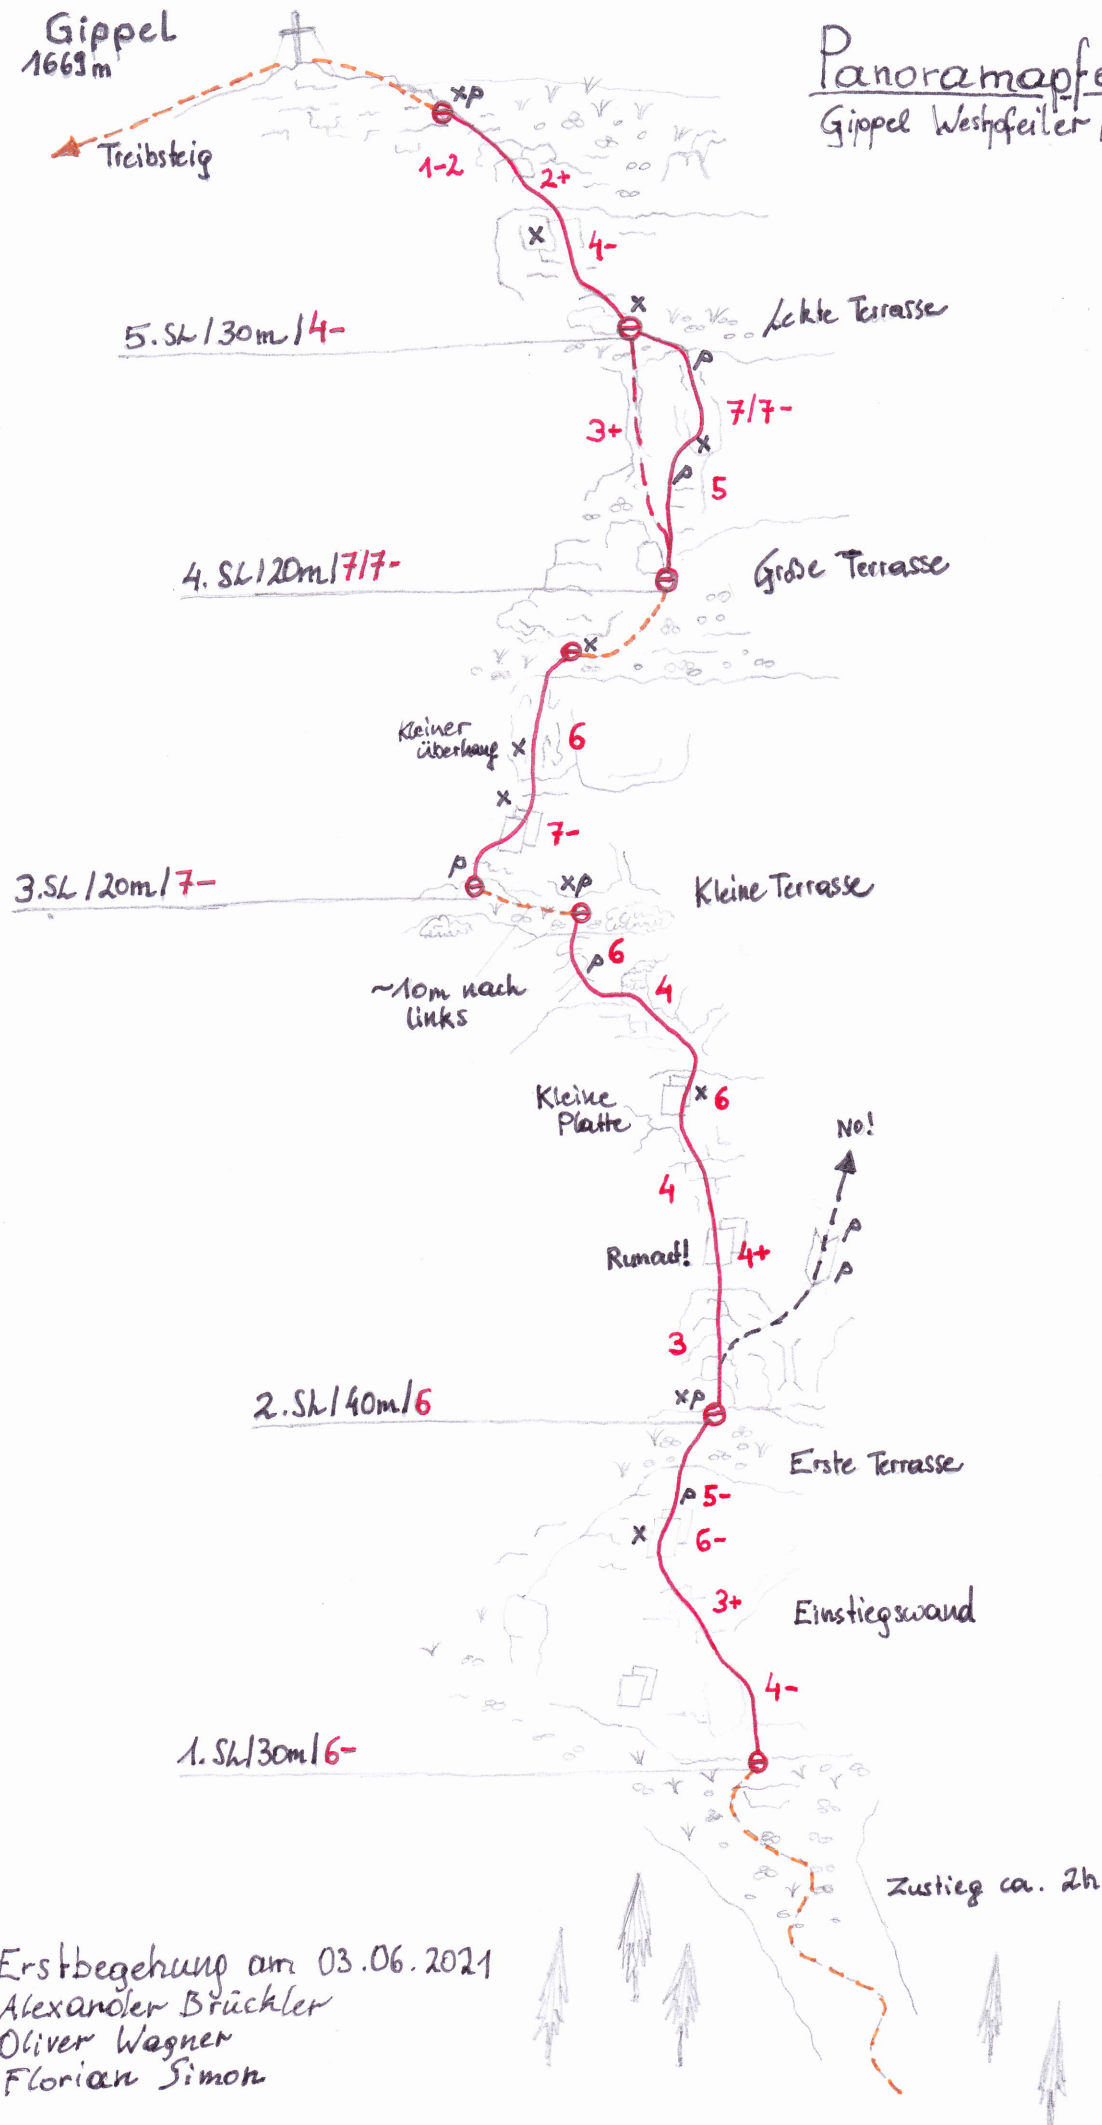 Gippel
1669m
Panoramapfe
Gippel Westpfeiler
xp
Treibsteig
1-2
2+
x
4-
x
Letzte Terrasse
5.SL/30m/4-
p
7/7-
3+
x
p
5
4.SL/20m/7/7-
Große Terrasse
x
Kleiner
überhang
x
6
x
7-
p
xp
3.SL/20m/7-
Kleine Terrasse
p
6
~10m nach
links
4
Kleine
Platte
x
6
No!
4
p
Runout!
4+
p
3
xp
2.SL/40m/6
Erste Terrasse
p
5-
x
6-
3+
Einstiegswand
4-
1.SL/30m/6-
Zustieg ca. 2h
Erstbegehung am 03.06.2021
Alexander Brückler
Oliver Wagner
Florian Simon